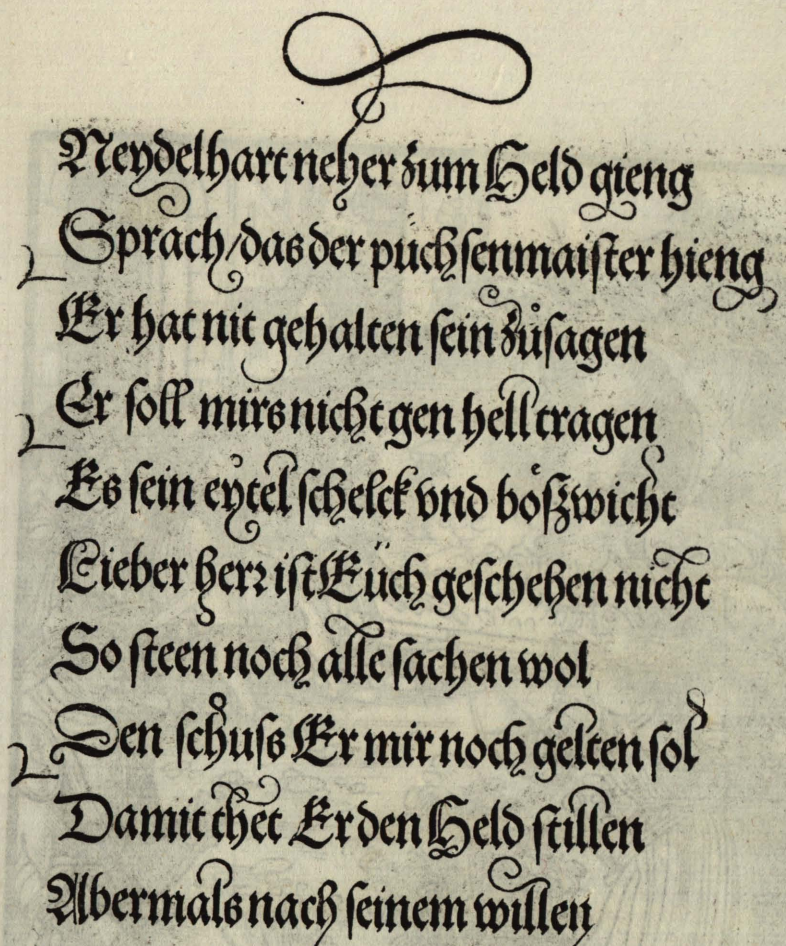 Neydelhart neher zum Held gieng
Sprach/das der püchsenmaister hieng
Er hat nit gehalten sein zůsagen
Er soll mirs nicht gen hell tragen
Es sein eytel schelck vnd bößzwicht
Lieber herr ist Eüch geschehen nicht
So steen noch alle sachen wol
Den schuss Er mir noch gelten sol
Damit thet Er den Held stillen
Abermals nach seinem willen